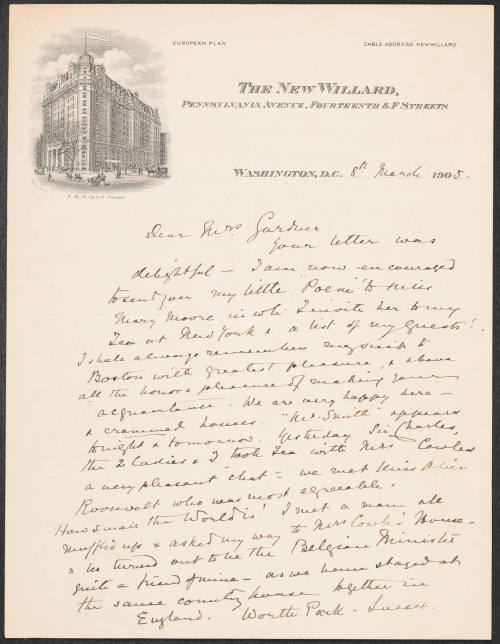 EUROPEAN PLAN
CABLE ADDRESS NEWWILLARD
THE NEW WILLARD,
PENNSYLVANIA AVENUE, FOURTEENTH & F STREETS
F. S. HIGHT MANAGER
WASHINGTON, D.C. 8th March 1905.
Dear Mrs Gardner
Your letter was
delightful – I am now encouraged
to send you my little "Poem" to Miss
Mary Moore in wh: I invite her to my
Tea at New York & a list of my guests!
I shale always remember my visit to
Boston with greatest pleasure, & above
all the honor & pleasure of making your
acquantance. We are very happy here –
& crammed houses. "Mrs. Smith" appears
tonight & tomorrow. Yesterday Sir Charles,
the 2 Ladies & I took Tea with Mrs Cowles
a very pleasant "chat" – we met Miss Alice
Roosevelt who was most agreeable!
How small the World is! I met a man all
muffled up & asked my way to Mrs Cowles' House –
& he turned out to be the Belgian Minister
quite a friend of mine – as we have stayed at
the same country house together in
England. Worth Park – Sussex.